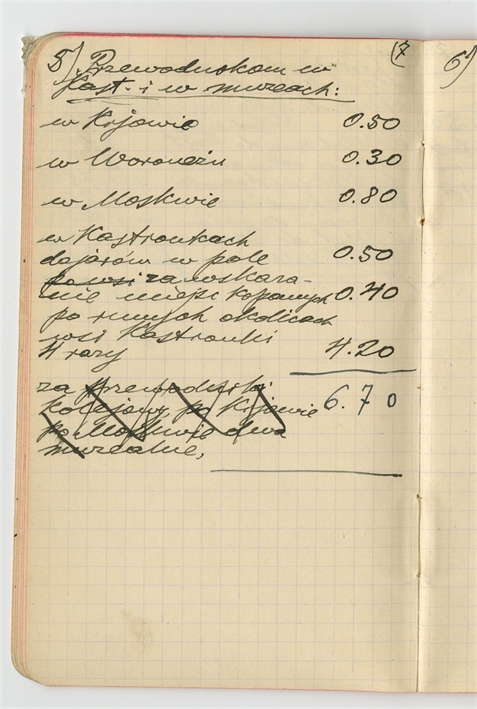 5) Przewodnikom w (7
Kast. i w muzeach:
w Kijowie 0.50
w Woroneżu 0.30
w Moskwie 0.80
w Kastronkach
dojazdów w pole 0.50
po wsi za wskaza-
nie miejsc kopanych 0.40
po różnych okolicach
wsi Kastronki
4 razy 4.20
za przewodniki 6.70
kolejowy po Kijowie
po Moskwie dwa
muzealne,
6)